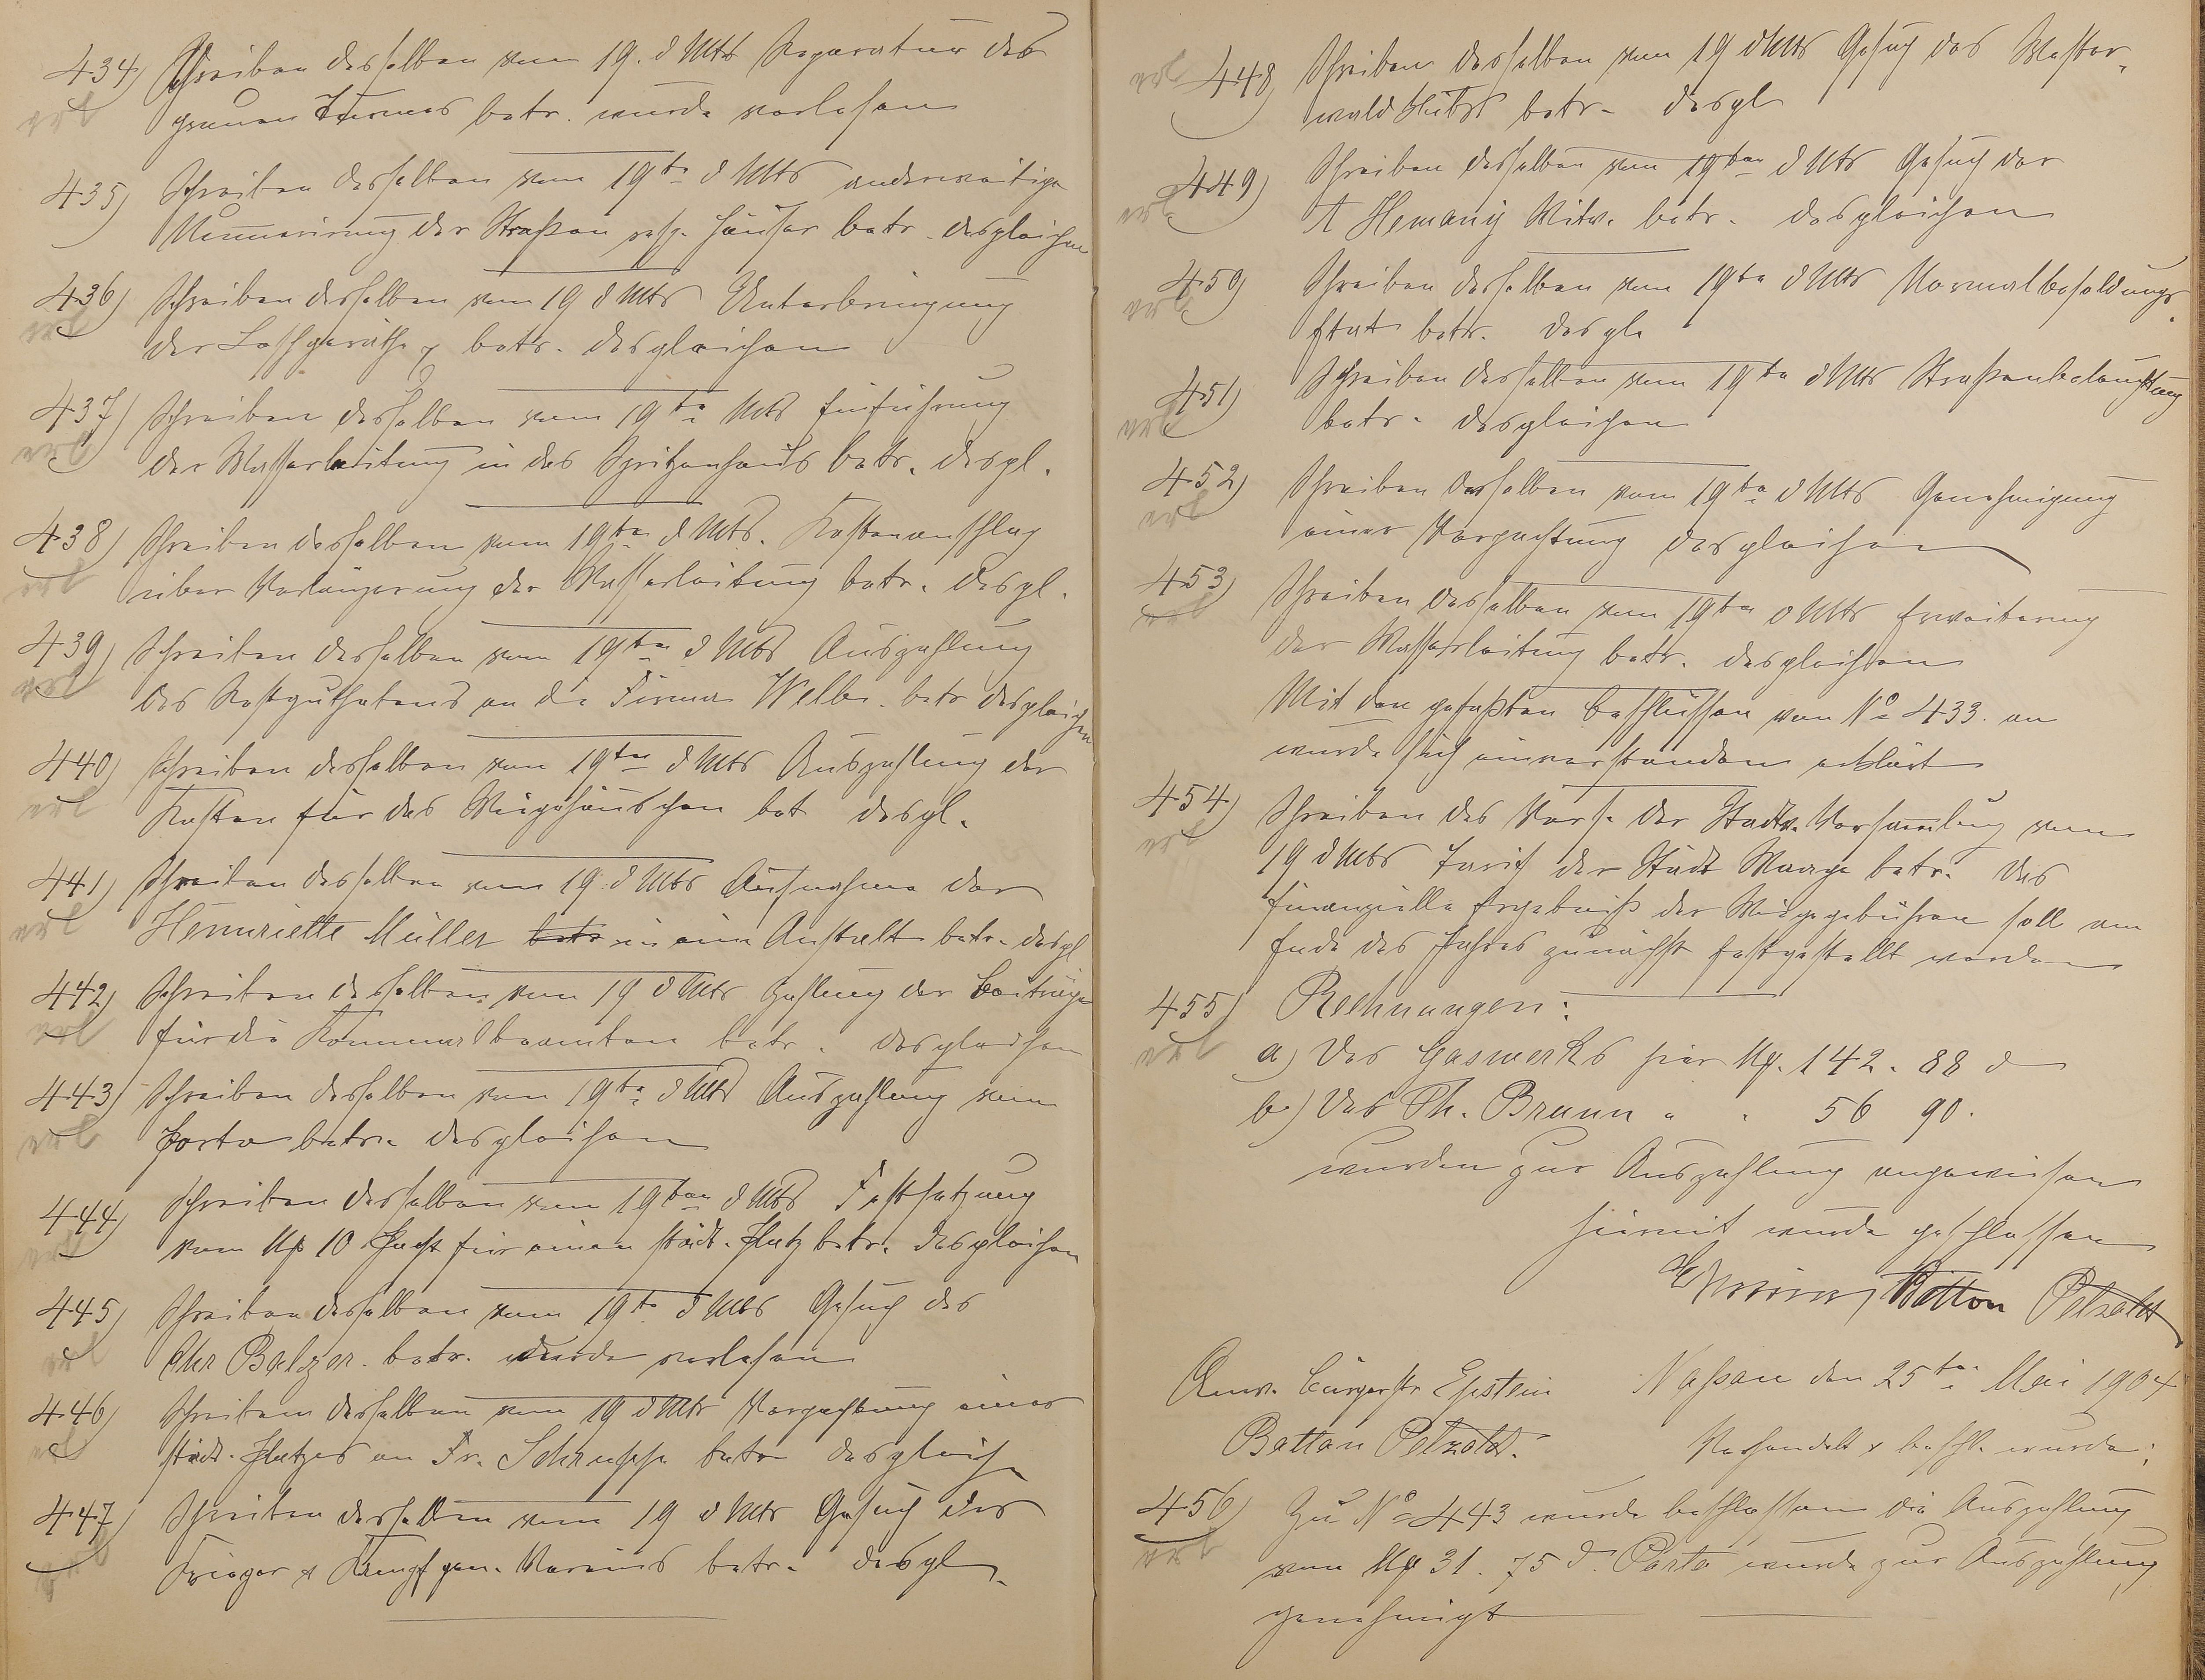 434) Schreiben desselben vom 19. d Mts Reparatur des
erl
grauen Turmes betr. wurde verlesen
435) Schreiben desselben vom 19te d Mts anderweitige
Nummerirung der Straßen resp. Häuser betr. desgleichen
436) Schreiben desselben vom 19 d Mts Unterbringung
erl
der Löschgeräthe betr. desgleichen
437) Schreiben desselben vom 19te Mts Einführung
erl
der Wasserleitung in das Spritzenhaus betr. desgl.
438) Schreiben desselben vom 19ten d Mts. Kostenanschlag
erl
über Verlängerung der Wasserleitung betr. desgl.
439) Schreiben desselben vom 19ten d Mts Auszahlung
erl
des Restguthabens an die Firma Welb. betr desgleichen
440) Schreiben desselben vom 19ten d Mts Auszahlung der
erl
Kosten für das Wiegehäuschen bet desgl.
441) Schreiben desselben vom 19. d Mts Aufnahme der
erl
Hennriette Müller betr in eine Anstalt betr. desgl
442) Schreiben desselben vom 19 d Mts Zahlung der Beiträge
erl
für die Kommunalbeamten betr. desgleichen
443) Schreiben desselben vom 19te d Mts Auszahlung von
erl
Porto betr. desgleichen
444) Schreiben desselben vom 19ten d Mts Festsetzung
erl
von Mk 10 Pacht für einen städt. Platz betr. desgleichen
445) Schreiben desselben vom 19te d Mts Gesuch des
erl
Chr Balzer. betr. wurde verlesen
446) Schreiben desselben vom 19 d Mts Verpachtung eines
erl
städt. Platzes an Fr. Schrupp betr desgleich
447) Schreiben desselben vom 19 d Mts Gesuch des
erl
Krieger & Kampfgen. Vereins betr. desgl.
erl 448) Schreiben desselben vom 19 d Mts Gesuch des Wester-
wald Klubs betr. desgl
449) Schreiben desselben vom 19ten d Mts Gesuch der
erl
A Hemany Witw. betr. desgleichen
450) Schreiben desselben vom 19te d Mts Normalbesoldungs-
erl
Etat betr. desgl.
451) Schreiben desselben vom 19te d Mts Straßenbeleuchtung
erl
betr. desgleichen
452) Schreiben desselben vom 19te d Mts Genehmigung
erl
einer Verpachtung desgleichen
453) Schreiben desselben vom 19ten d Mts Erweiterung
erl
der Wasserleitung betr. desgleichen
Mit den gefaßten Beschlüssen von No 433. an
wurde sich einverstanden erklärt
454) Schreiben des Vors. der Stadtv. Versamlung vom
erl
19 d Mts Tarif der Städt Waage betr. Das
finanzielle Ergebniß der Wiegegebühren soll am
Ende des Jahres zunächst festgestellt werden
455) Rechnungen:
erl
a) Des Gaswerks hier Mk. 142. 88 d
b) Des Th. Braun " " 56 90.
wurden zur Auszahlung angewiesen
hiermit wurde geschlossen
Botton Petzoldt
Anw. Bürgerstr Epstein Naßau den 25ten Mai 1904
Botton Petzoldt. Verhandelt & beschl. wurde:
456) Zu No 443 wurde beschlossen die Auszahlung
erl
von Mk 31. 75 d. Porto wurde zur Auszahlung
genehmigt